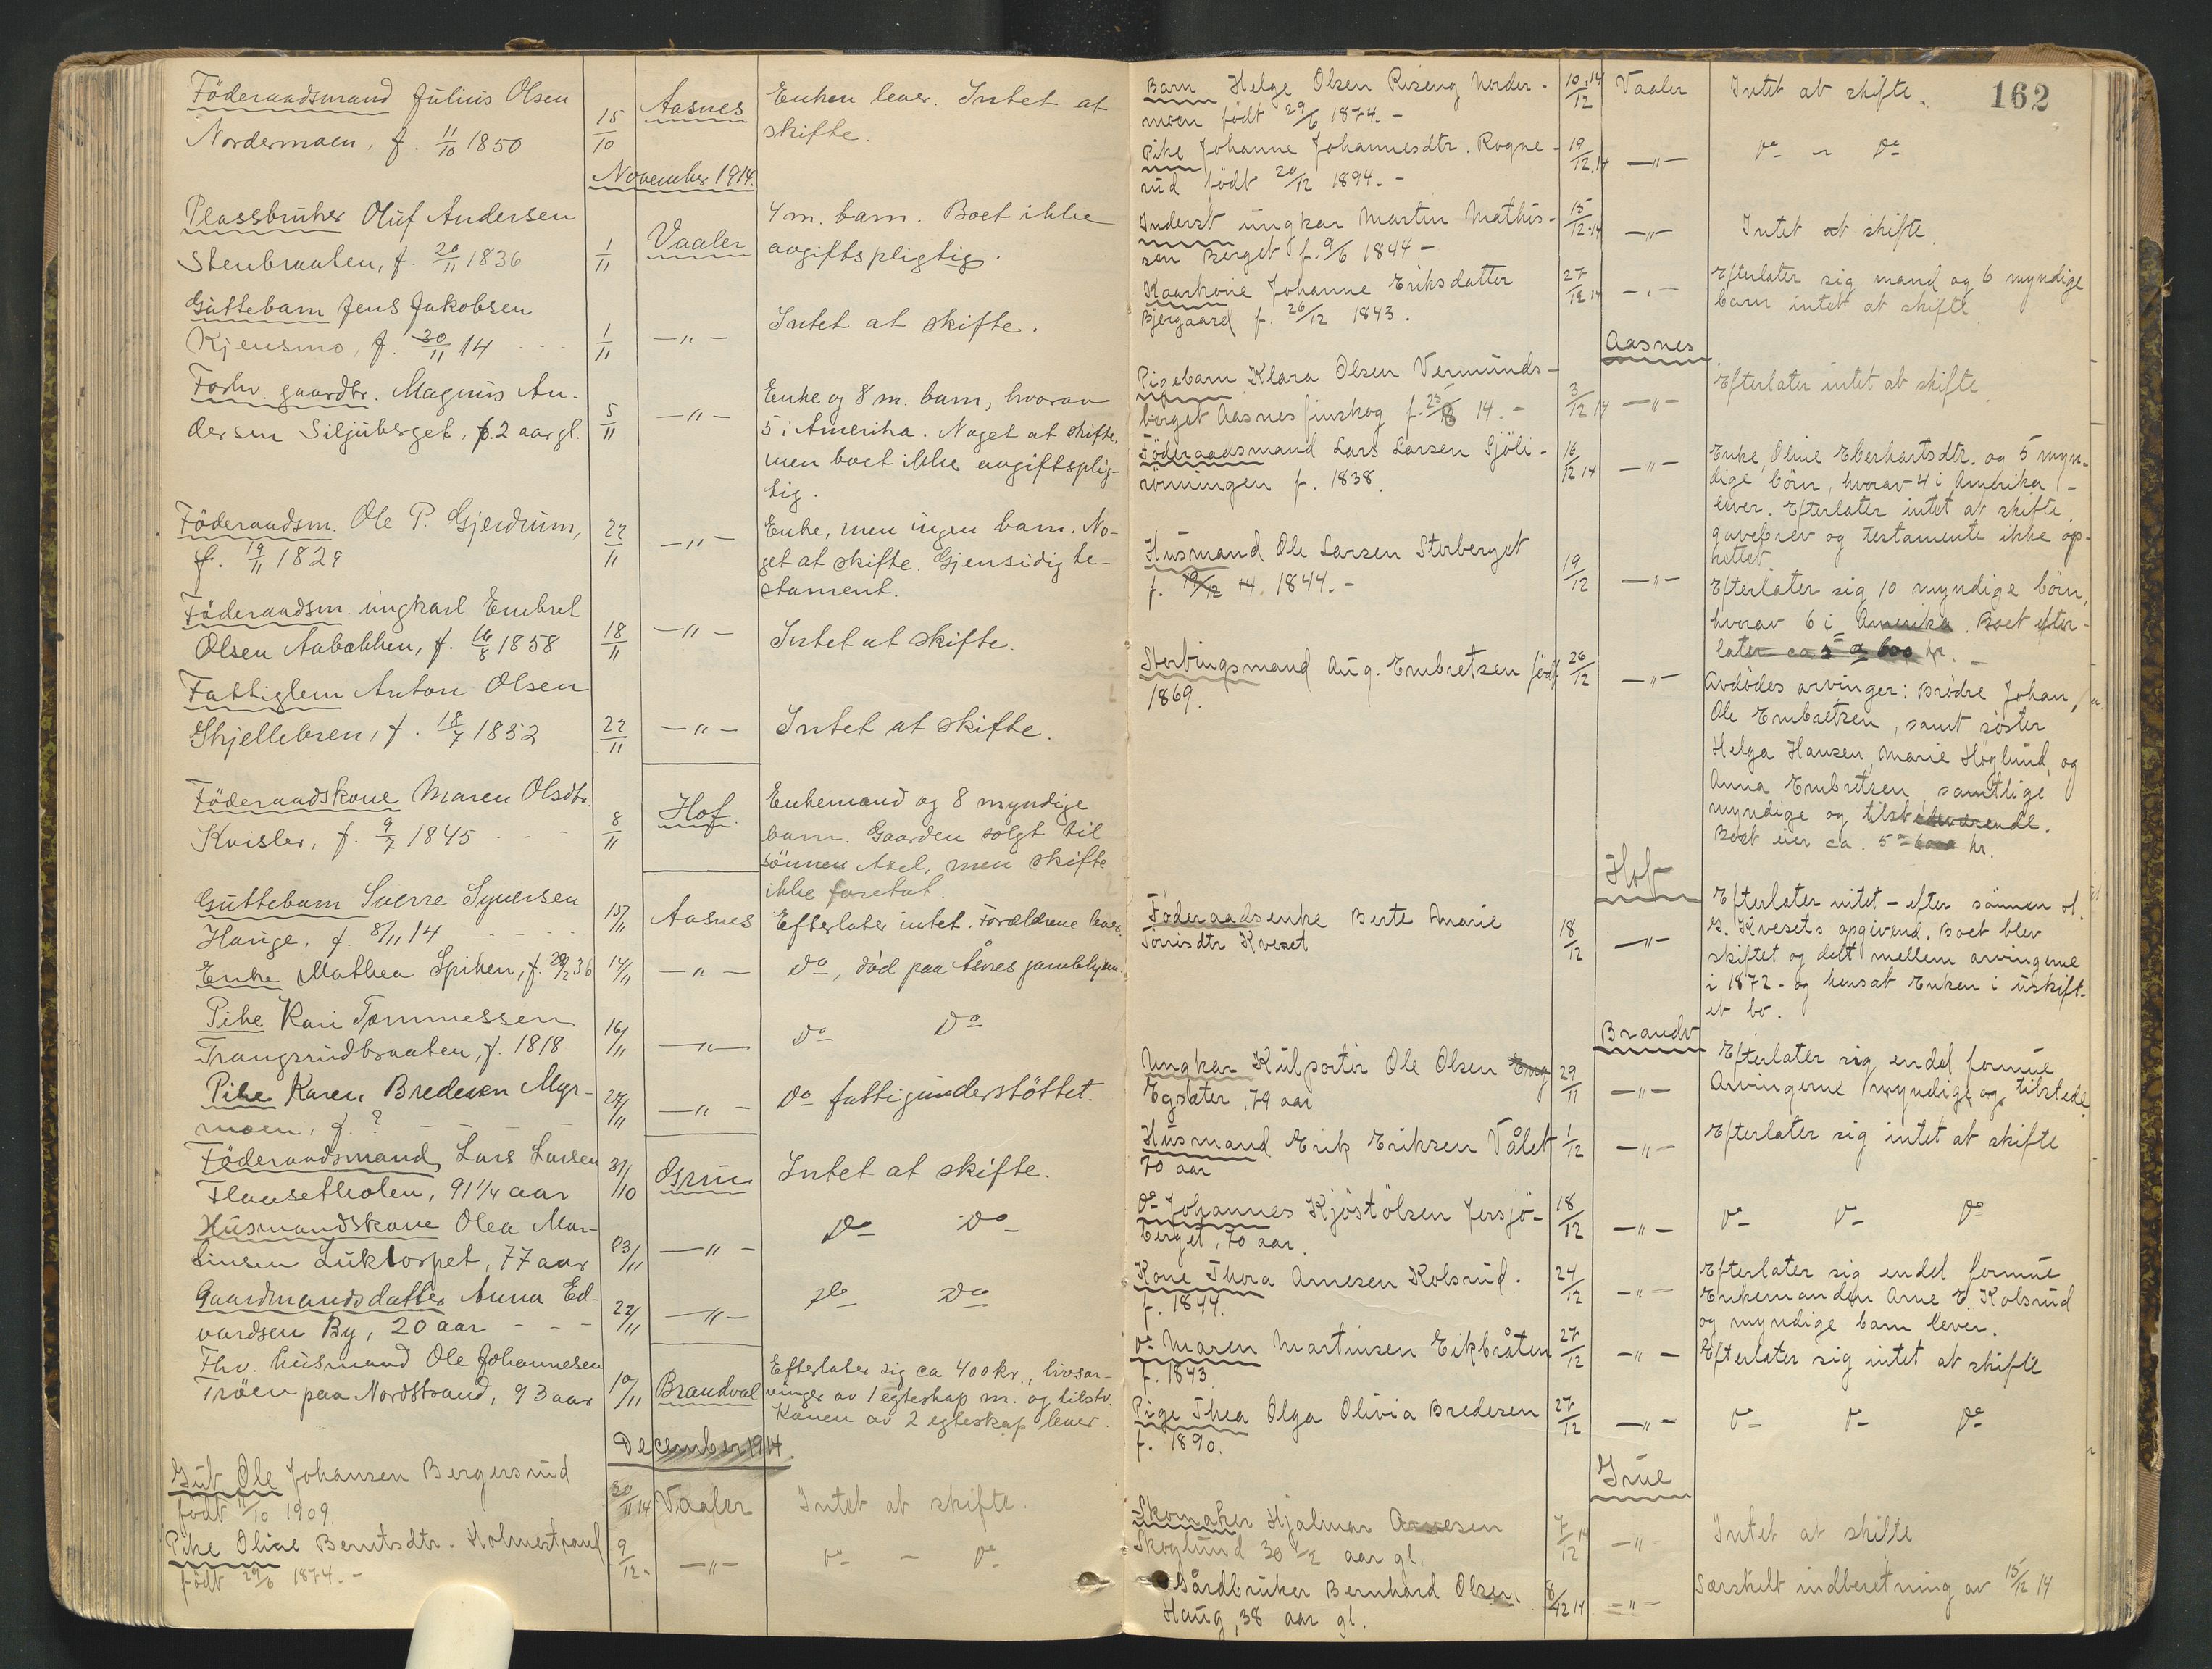 Föderaadsmand Julius Olsen
Nordermoen, f. 11/10 1850
15/10
Aasnes
Enken lever. Intet at
skifte.
November 1914.
Plassbruker Oluf Andersen
Stenbraaten, f. 20/11 1836
1/11
Vaaler
4 m. barn. Boet ikke
avgiftspligtig.
Guttebarn Jens Jakobsen
Kjensmo, f. 30/11 14
1/11
—"—
Intet at skifte.
Forhv. gaardbr. Magnus An-
dersen Siljuberget, 62 aar gl.
5/11
—"—
Enke og 8 m. barn, hvorav
5 i Amerika. Noget at skifte,
men boet ikke avgiftsplig-
tig.
Föderaadsm. Ole P. Gjerdrum,
f. 19/11 1829
22/11
—"—
Enke, men ingen barn. No-
get at skifte. Gjensidig te-
stament.
Föderaadsm. ungkarl Embret
Olsen Aabakken, f. 16/8 1858
18/11
—"—
Intet at skifte.
Fattiglem Anton Olsen
Skjellebren, f. 18/7 1832
22/11
—"—
Intet at skifte.
Föderaadskone Maren Olsdtr.
Kvisler, f. 9/7 1845
8/11
Hof.
Enkemand og 8 myndige
barn. Gaarden solgt til
sönnen Axel, men skifte
ikke foretat.
Guttebarn Sverre Syversen
Hauge, f. 8/11 14
15/11
Aasnes
Efterlater intet. Forældrene lever.
Enke Mathea Spiken, f. 28/2 36
14/11
—"—
Do, död paa Åsnes gamlehjem.
Pike Kari Tommessen
Trangsrudbraaten, f. 1818
16/11
—"—
Do Do
Pike Karen Bredesen Myr-
moen, f. ?
24/11
—"—
Do fattigunderstöttet.
Föderaadsmand, Lars Larsen
Flaasetkolen, 91 1/4 aar
31/10
Grue
Intet at skifte.
Husmandskone Olea Mar-
tinsen Luktorpet, 77 aar
—"—
Do Do
Gaardmandsdatter Anna Ed-
vardsen By, 20 aar
22/11
—"—
Do Do
Fhv. husmand Ole Johannesen
Tröen paa Nordstrand, 93 aar
10/11
Brandval
Efterlater sig ca 400 kr., livsar-
vinger av 1 egteskap m. og tilstv.
Konen av 2 egteskap lever.
December 1914
Gut Ole Johansen Bergersrud
födt 11/10 1909.
30/11 14
Vaaler
Intet at skifte.
Pike Oline Berntsdtr. Holmestrand
födt 29/6 1874.-
9/12.
—"—
Do - Do
162
Barn Helge Olsen Riseng Norder-
moen födt 29/6 1874.-
10/12 14
Vaaler
Intet at skifte.
Pike Johanne Johannesdtr. Rogne-
rud födt 20/12 1894.-
19/12.14
—"—
Do - Do
Inderst ungkar Martin Mathis-
sen Berget f. 9/6 1844-
15/12.14
—"—
Intet at skifte.
Kaarkone Johanne Eriksdatter
Bjergaard f. 26/12 1843.
27/12 14
—"—
Efterlater sig mand og 6 myndige
barn intet at skifte
Aasnes
Pigebarn Klara Olsen Vermunds-
berget Aasnes finskog f. 14.-
3/12 14
—"—
Efterlater intet at skifte.
Föderaadsmand Lars Larsen Gjöli-
rönningen f. 1838.
16/12 14
—"—
Enke, Oline Eberhartsdtr. og 5 myn-
dige börn, hvorav 4 i Amerika -
lever. Efterlater intet at skifte.
gavebrev og testamente ikke op-
rettet.
Husmand Ole Larsen Storberget
f. 19/12 14. 1844.-
19/12
—"—
Efterlater sig 10 myndige börn,
hvorav 6 i Amerika. Boet efter-
later ca 5 a 600 kr.
Storbingsmand Aug. Embretsen födt
1869.
26/12
—"—
Avdödes arvinger: Brödre Johan,
Ole Embretsen, samt söster
Helga Hansen, Marie Höglund, og
Anna Embretsen, samtlige
myndige og tilstedeværende.
Boet eier ca. 5 a 6000 kr.
Hof
Föderaadsenke Berte Marie
Torisdtr Kveset
18/12
—"—
Efterlater intet - efter sönnen H.
G. Kvesets opgivend. Boet blev
skiftet og delt mellem arvingerne
i 1872 - og hensat Enken i uskift-
et bo.
Brandv
Ungkar Kulportör Ole Olsen Eng
Egsæter, 79 aar
29/11
—"—
Efterlater sig endel formue
Arvingerne myndige og tilstede.
Husmand Erik Eriksen Vålet
70 aar
1/12
—"—
Efterlater sig intet at skifte
Do Johannes Kjöstolsen Jersjö-
berget, 70 aar.
18/12
—"—
Do Do Do
Kone Thora Arnesen Kolsrud.
f. 1844.
24/12
—"—
Efterlater sig endel formue
Enkemanden Arne E. Kolsrud
og myndige barn lever.
Do Maren Martinsen Eikbråten
f. 1843
27/12
—"—
Efterlater sig intet at skifte
Pige Thea Olga Olivia Bredesen
f. 1890.
27/12
—"—
Do Do Do
Grue
Skomaker Hjalmar Arnesen
Skoglund 30 1/2 aar gl.
7/12 14
—"—
Intet at skifte
Gårdbruker Bernhard Olsen
Haug, 38 aar gl.
8/12 14
—"—
Særskilt indberetning av 15/12 14